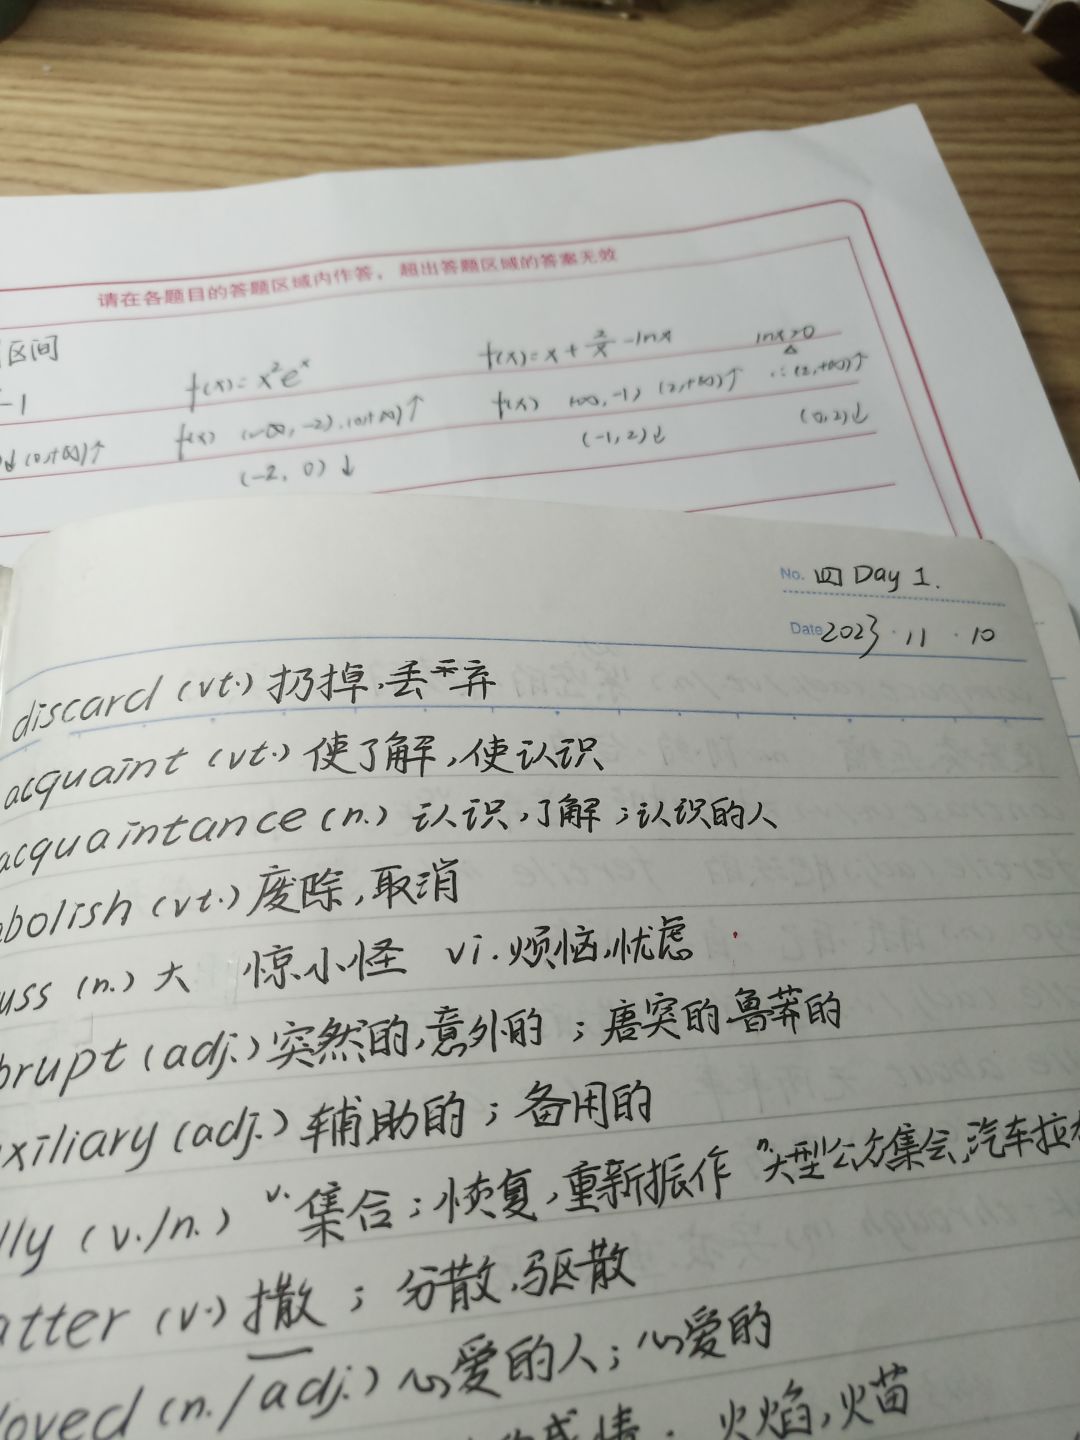 请在各题目的答题区域内作答，超出答题区域的答案无效
区间
f(x)= x²eˣ
f(x)= x + 2/x -lnx
lnx>0
-1
f(x) (-∞, -2), (0,+∞)↑
f(x) (∞, -1) (2,+∞)↑
∴(2,+∞)↑
↓(0,+∞)↑
(-2, 0)↓
(-1, 2)↓
(0,2)↓
No. 四 Day 1.
Date 2023 · 11 · 10
discard (vt.) 扔掉,丢弃
acquaint (vt.) 使了解,使认识
acquaintance (n.) 认识,了解;认识的人
bolish (vt.) 废除,取消
uss (n.) 大 惊小怪 vi.烦恼,忧虑
brupt (adj.) 突然的,意外的;唐突的,鲁莽的
xiliary (adj.) 辅助的;备用的
lly (v./n.) v.集合;恢复,重新振作 n.大型公众集会,汽车拉
atter (v.) 撒;分散,驱散
loved (n./adj.) 心爱的人;心爱的
感情. 火焰,火苗